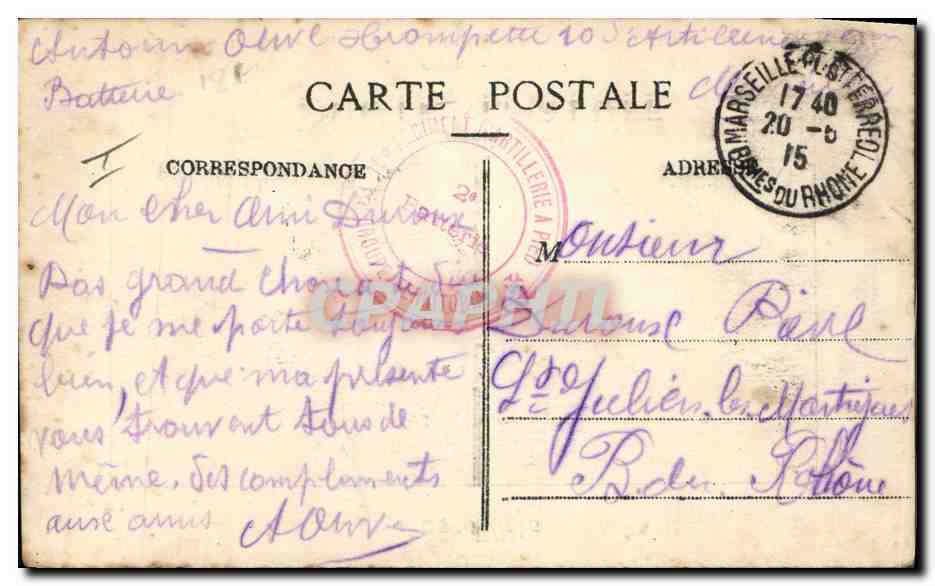 Antonin Olive trompette 10 d'Artillerie
Batterie
CARTE POSTALE
MARSEILLE PL. ST FERREOL
17 40
20 - 6
15
BCHES DU RHONE
CORRESPONDANCE
ADRESSE
ARTILLERIE A PIED
2e
Batterie
Mon cher Ami Duroux
Pas grand chose a te
que je me porte toujours
bien, et que ma présente
vous trouvent tous de
même. Des compliments
aux amis AOlive
Monsieur
Duroux Pierre
St Julien les Martigues
B. du Rhône
CPAPHIL